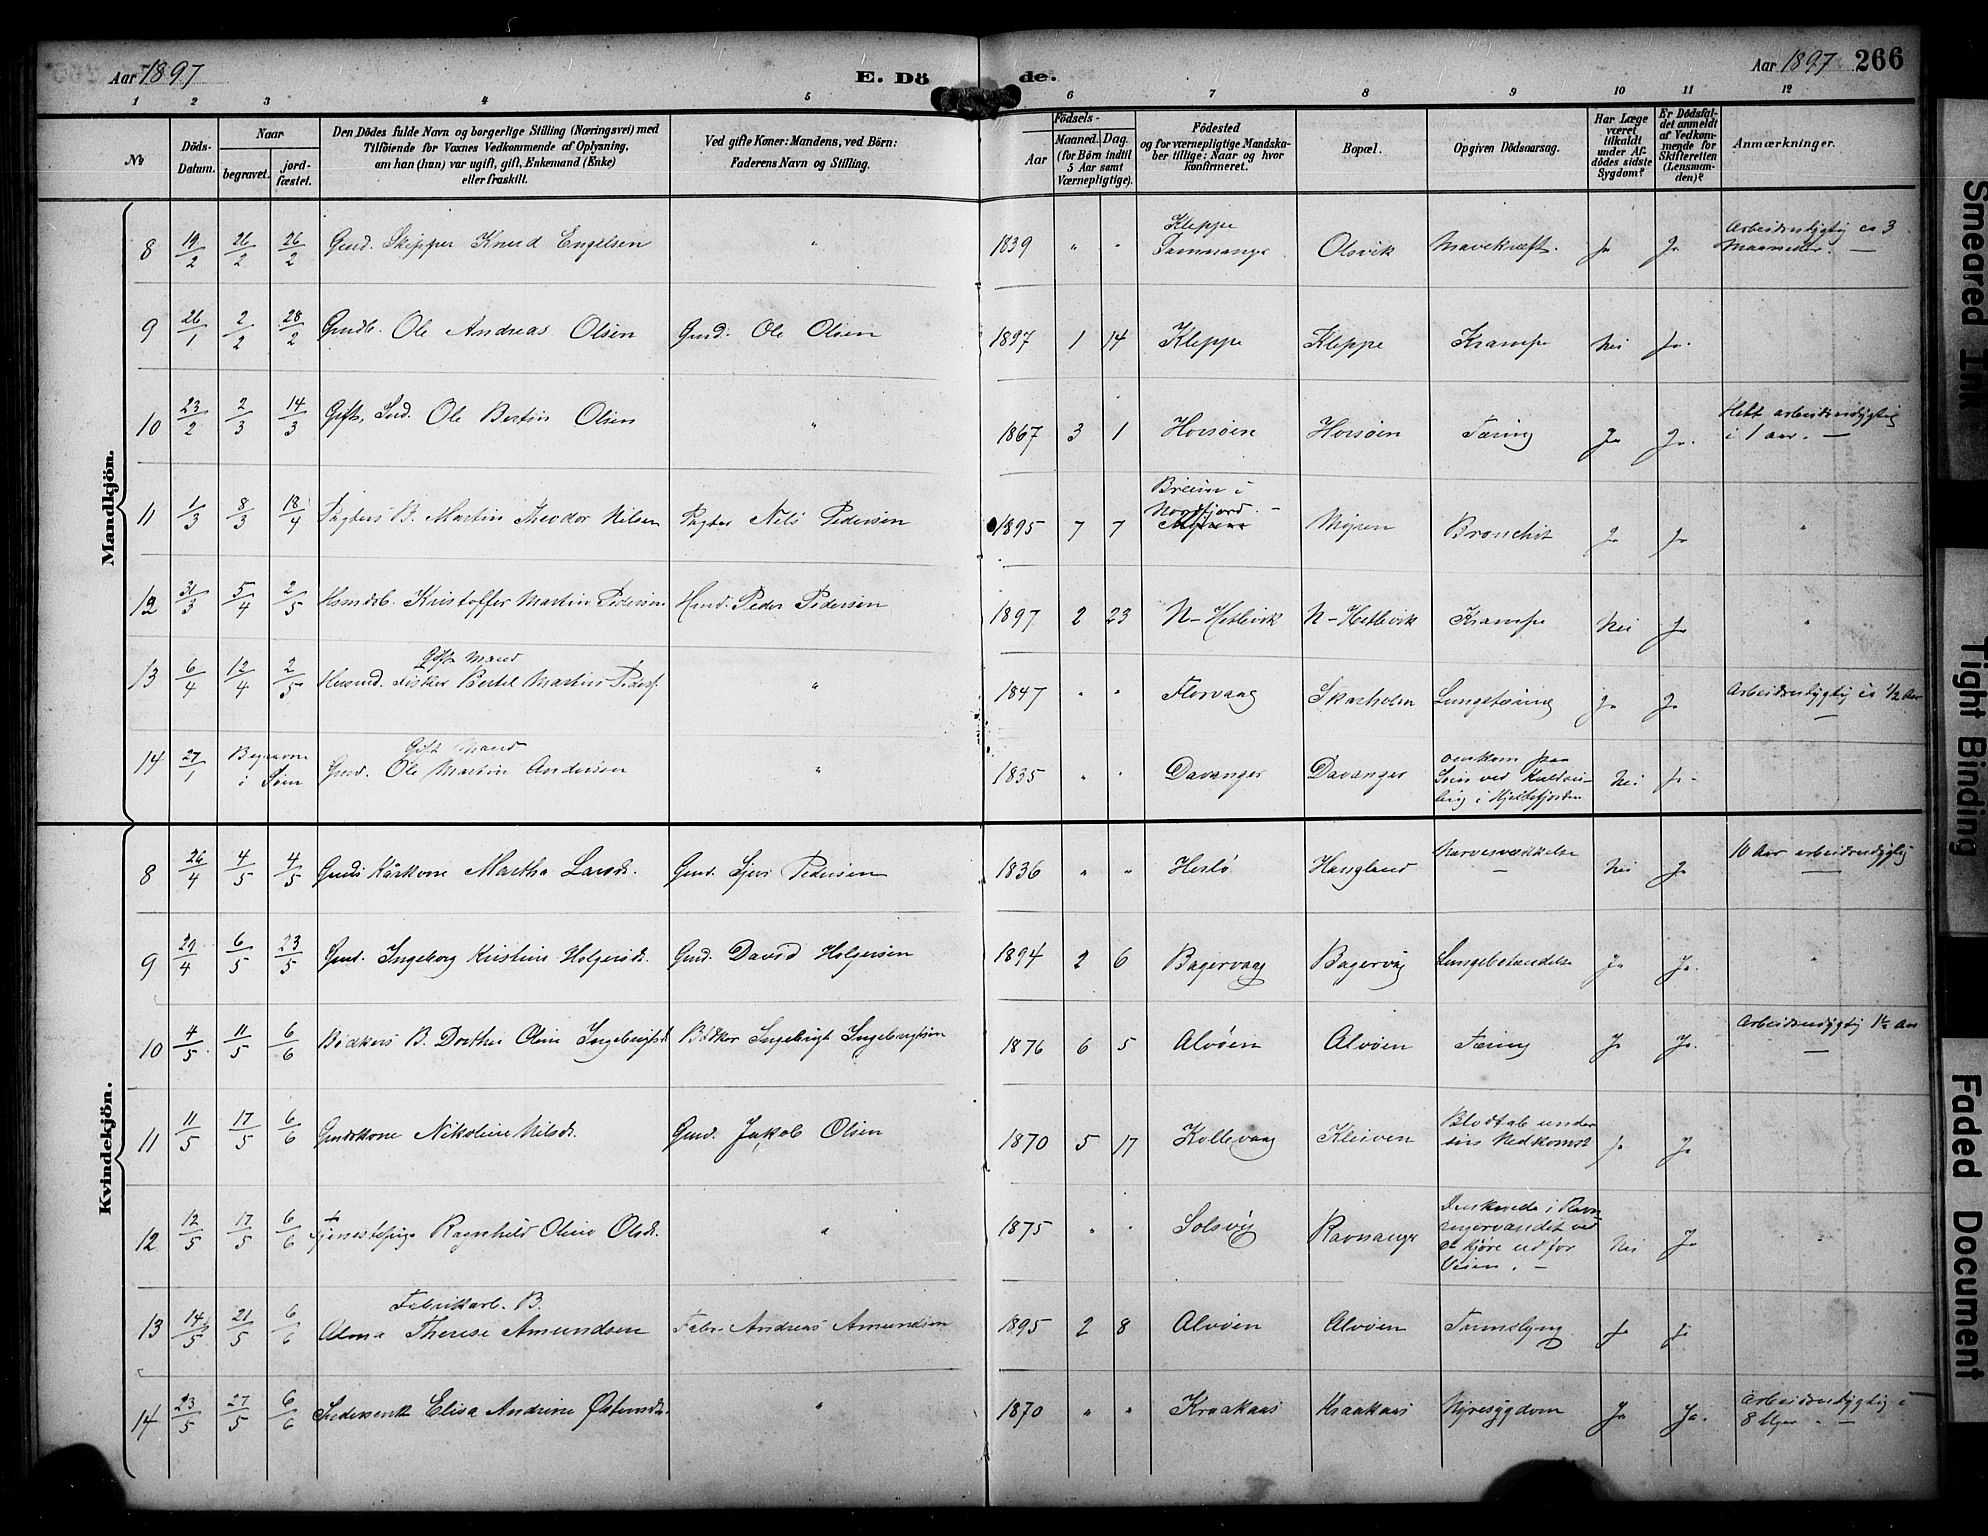 Aar 1897
E. Dö de.
Aar 1897 266
1 2 3 4 5 6 7 8 9 10 11 12
No
Döds-Datum.
Naar
begravet.
jord-fæstet.
Den Dödes fulde Navn og borgerlige Stilling (Næringsvei) med
Tilföiende for Voxnes Vedkommende af Oplysning,
om han (hun) var ugift, gift, Enkemand (Enke)
eller fraskilt.
Ved gifte Koner: Mandens, ved Börn:
Faderens Navn og Stilling.
Födsels-
Aar
Maaned. Dag.
(for Börn indtil
5 Aar samt
Værnepligtige).
Födested
og for værnepligtige Mandska-
ber tillige: Naar og hvor
konfirmeret.
Bopæl.
Opgiven Dödsaarsag.
Har Læge
været
tilkaldt
under Af-
dödes sidste
Sygdom?
Er Dödsfal-
det anmeldt
af Vedkom-
mende for
Skifteretten
(Lensman-
den)?
Anmærkninger.
Mandkjön.
8 19/2 26/2 26/2 Gmd. Skipper Knud Engelsen " 1839 " " Kleppe Olsvik Mavekræft. Ja Ja Arbeidsudygtig ca 3 Maaneder. —
9 26/1 2/2 28/2 Gmdb. Ole Andreas Olsen Gmd. Ole Olsen 1897 1 14 Kleppe Kleppe Krampe Nei Ja.
10 23/2 2/3 14/3 Gift, Ole Bertin Olsen " 1867 3 1 Horsöen Horsöen Tæring Ja Ja. Helt arbeidsudygtig i 1 aar. —
11 1/3 8/3 18/4 Pagters B. Martin Theodor Nilsen Pagter Nels Pedersen 1895 7 7 Breim i Nordfjord. — Mjøen Bronchit Ja Ja "
12 31/3 5/4 2/5 Kristoffer Martin Pedersen Hmd. Peder Pedersen 1897 2 23 N-Hetlevik N-Hetlevik Krampe Nei Ja "
13 6/4 12/4 2/5 Gift Mand Husmd. Fisker Bertel Martin Peders. " 1847 " " Florvaag Skarholm Lungetæring Ja Ja Arbeidsudygtig ca 1/2 Aar —
14 27/1 Begravne i Søen Gift Mand Gmd. Ole Martin Andersen " 1835 " " Davanger Davanger omkom paa Søen ved i Hjeltefjorden Nei Ja —
Kvindekjön.
8 26/4 4/5 4/5 Gmds Kårkone Martha Larsdr. Gmd. Sjur Pedersen 1836 " " Herlö Haugland Nervesvækkelse — Nei Ja 10 Aar arbeidsudygtig —
9 29/4 6/5 23/5 Gmd. Ingeborg Kristine Holgersdr. Gmd. David Holgersen 1894 2 6 Bagervaag Bagervåg Lungebetændelse Ja Ja. "
10 4/5 11/5 6/6 Bødkers B. Dorthea Oline Ingebrigtsd. Bödker Ingebrigt Ingebrigtsen 1876 6 5 Alvøen Alvøen Tæring Ja Ja. Arbeidsudygtig 1½ Aar —
11 11/5 17/5 6/6 Gmdskone Nikoline Nilsdr. Gmd. Jakob Olsen 1870 5 17 Kollevaag Kleiven Blodtab under sin Nedkomst Ja Ja
12 12/5 17/5 6/6 Tjenestepige Ragnhild Oline Olsdr. " 1875 " " Solsvig Ravnanger Druknede i Ravn-angervandet ved at kjøre ud for Veien. — Nei Ja "
13 14/5 21/5 6/6 Fabrikarb. B. Alma Therese Amundsen Fabr. Andreas Amundsen 1895 2 8 Alvøen Alvøen Tarmslyng Ja Ja.
14 23/5 27/5 6/6 Elisa Andrine Østensdr. " 1870 " " Kraakaas Kraakaas Nyresygdom Ja Ja. Arbeidsudygtig i 8 Uger " —
Smeared Ink
Tight Binding
Faded Document